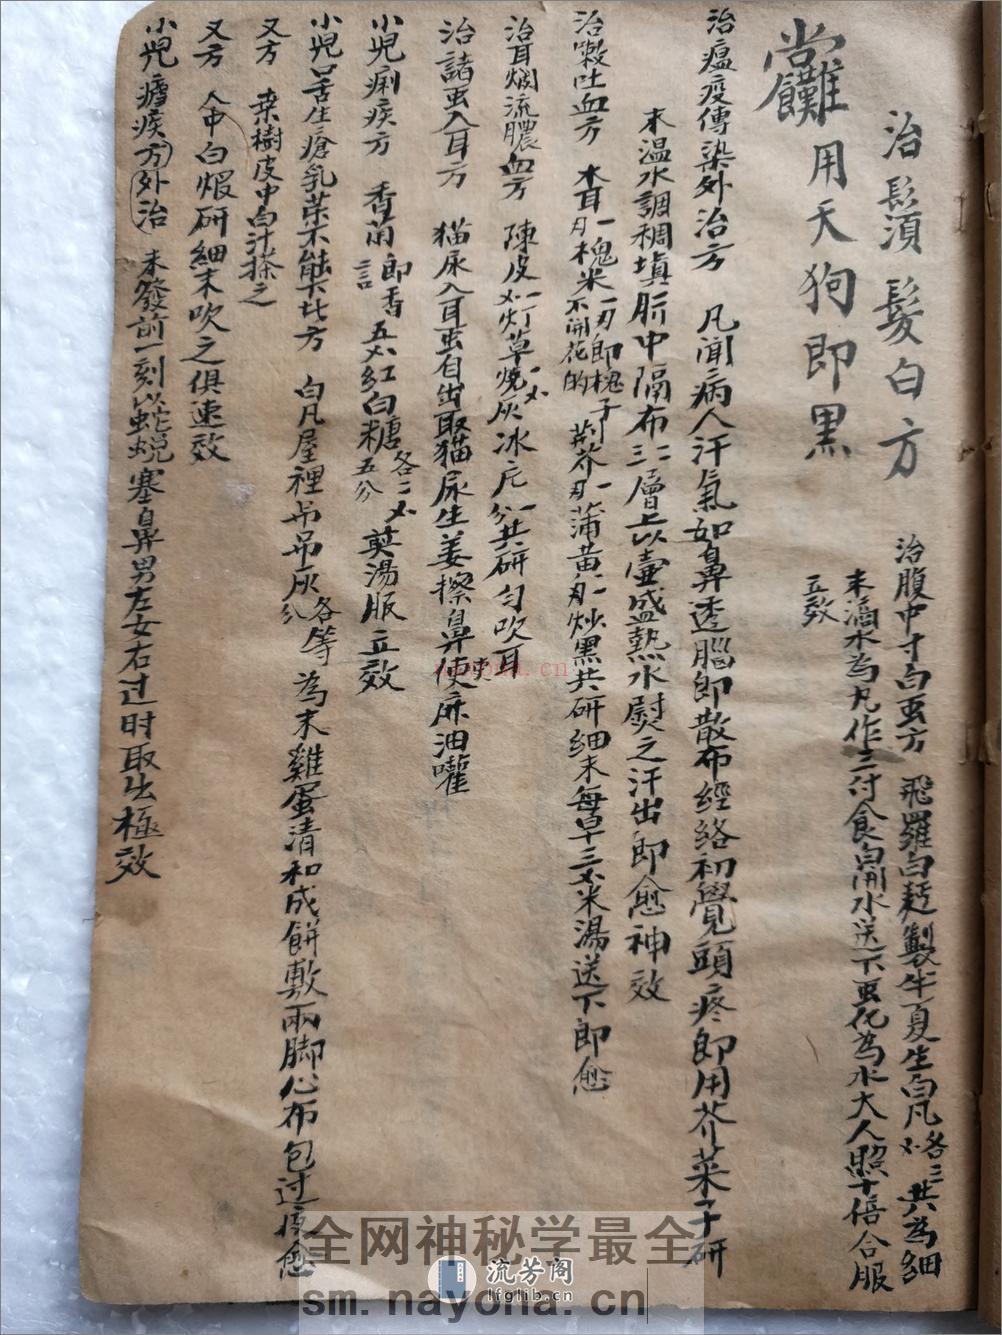 治鬚髮白方
用天狗即黑
治腹中寸白虫方 飛羅白麪製半夏生白凡各三 共為細
末滴水為凡作三付食白開水送下虫化為水大人照十倍合服
立效
治瘟疫傳染外治方 凡聞病人汗氣如鼻透腦即散布經絡初覺頭疼即用芥菜子研
末溫水調稠填脐中隔布三二層上以壺盛熱水熨之汗出即愈神效
治嗽吐血方 木耳一 槐米一 即槐子不開花的 荆芥一 蒲黃 炒黑共研細末每早三 米湯送下即愈
治耳烟流膿血方 陳皮一 灯草一 燒灰冰片一分共研勻吹耳
治諸虫入耳方 猫尿入耳虫自出取猫尿生姜擦鼻使麻油嚾
小兒痢疾方 香 即香 五 紅白糖各二 五分 煎湯服立效
小兒口舌生瘡乳茶不能下此方 白凡屋裡吊吊灰各等分 為末雞蛋清和成餅敷兩脚心布包过夜愈
又方 桒樹皮中白汁搽之
又方 人中白煆研細末吹之俱速效
小兒瘧疾方外治 未發前一刻以蛇蜕塞鼻男左女右过时取出極效
nayona.cn
全网神秘学最全
流芳阁
lfglib.cn
sm.nayona.cn